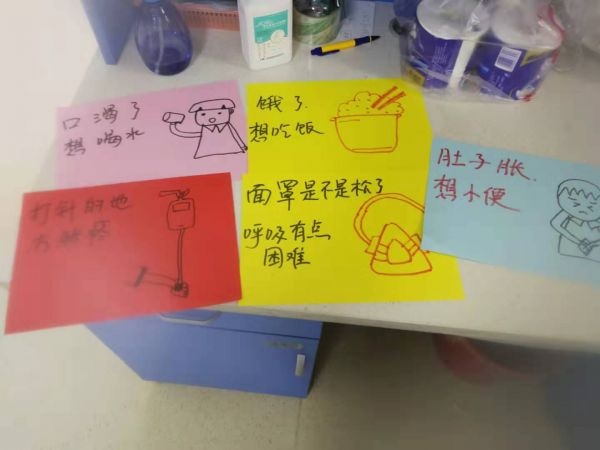 口渴了
想喝水
饿了.
想吃饭
肚子胀.
想小便
打针的地
方肿疼
面罩是不是松了
呼吸有点
困难